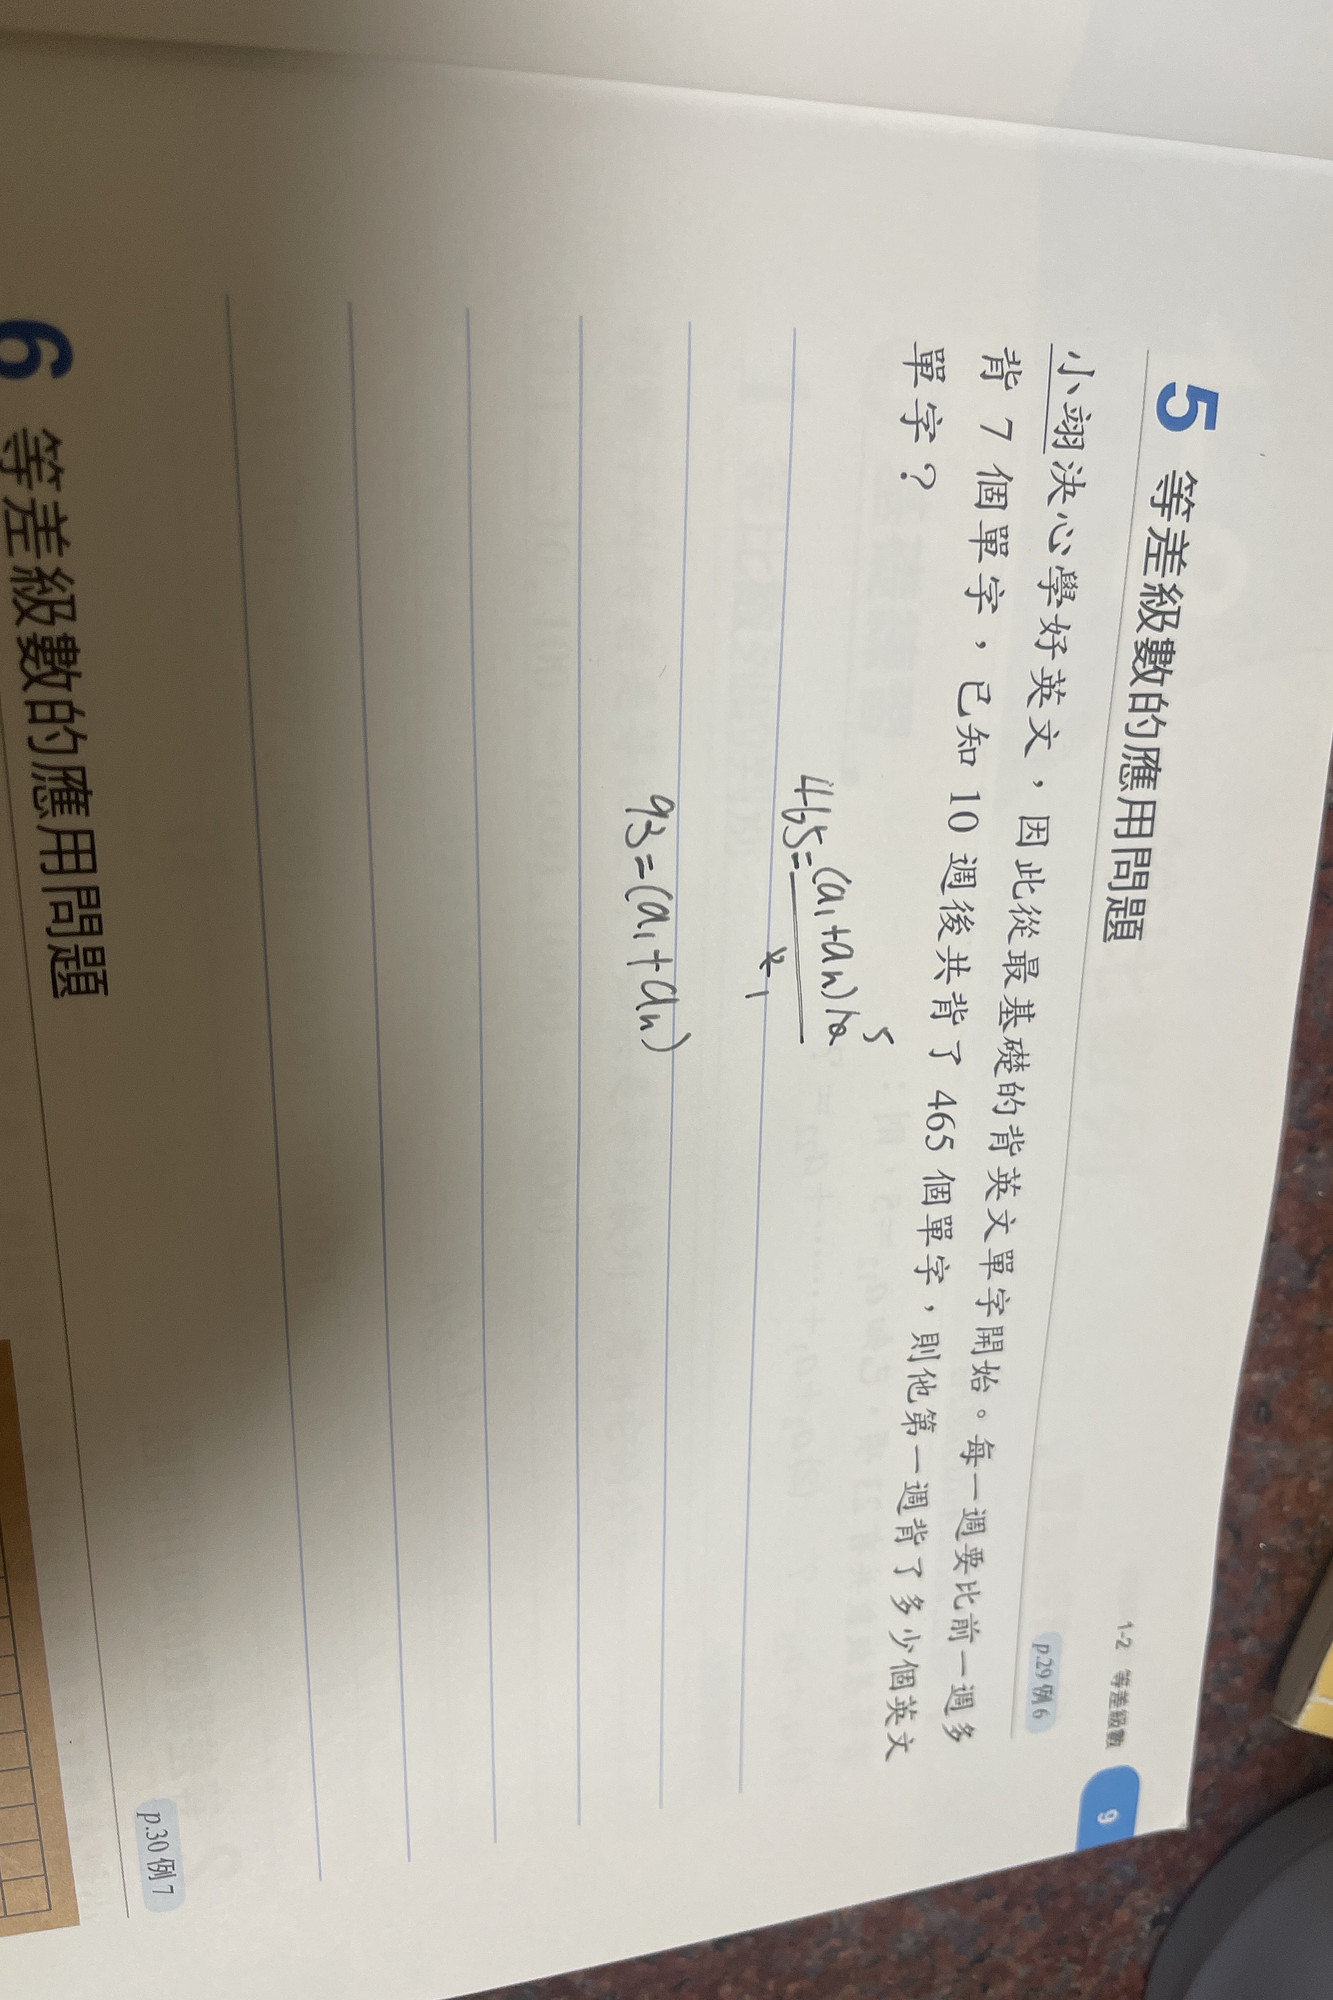 1-2 等差級數 9
5 等差級數的應用問題 p.29 例 6
小翊決心學好英文，因此從最基礎的背英文單字開始。每一週要比前一週多
背 7 個單字，已知 10 週後共背了 465 個單字，則他第一週背了多少個英文
單字？
5
465=(a₁+an)10
2 1
93=(a₁+an)
6 等差級數的應用問題 p.30 例 7